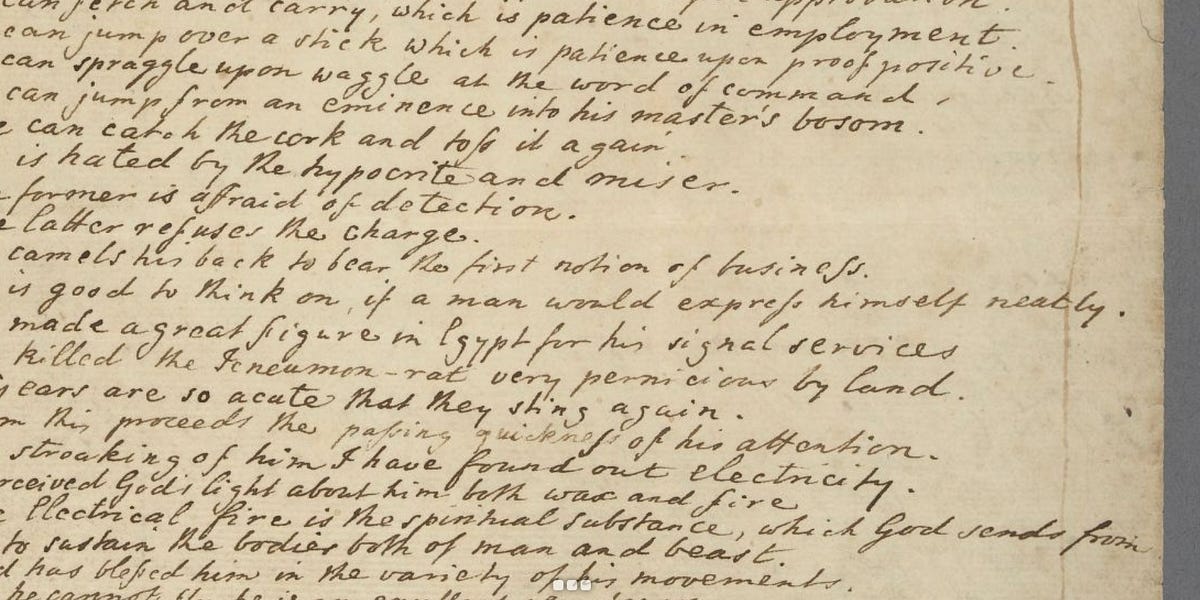 can fetch and carry, which is patience in employment.
can jump over a stick which is patience upon proof positive.
can spraggle upon waggle at the word of command,
can jump from an eminence into his master's bosom.
e can catch the cork and toſs it again
is hated by the hypocrite and miser.
former is affraid of detection.
e latter refuses the charge.
camels his back to bear the first notion of busineſs.
is good to think on, if a man would expreſs himself neatly.
made a great figure in Egypt for his signal services
killed the Icneumon-rat very pernicious by land.
ears are so acute that they sting again.
m this proceeds the paſsing quickneſs of his attention.
stroaking of him I have found out electricity.
rceived God's light about him both wax and fire
e Electrical fire is the spiritual substance, which God sends from
to sustain the bodies both of man and beast.
d has bleſsed him in the variety of his movements.
he cannot fly, he is an